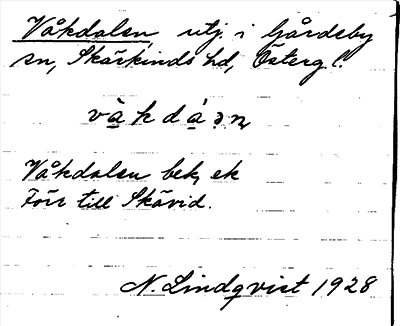 Våkdalen, utj. i Gårdeby
sn, Skärkinds hd, Österg. l.
vàkdáən
Våkdalen bek. ek
Förr till Skävid.
N. Lindqvist 1928